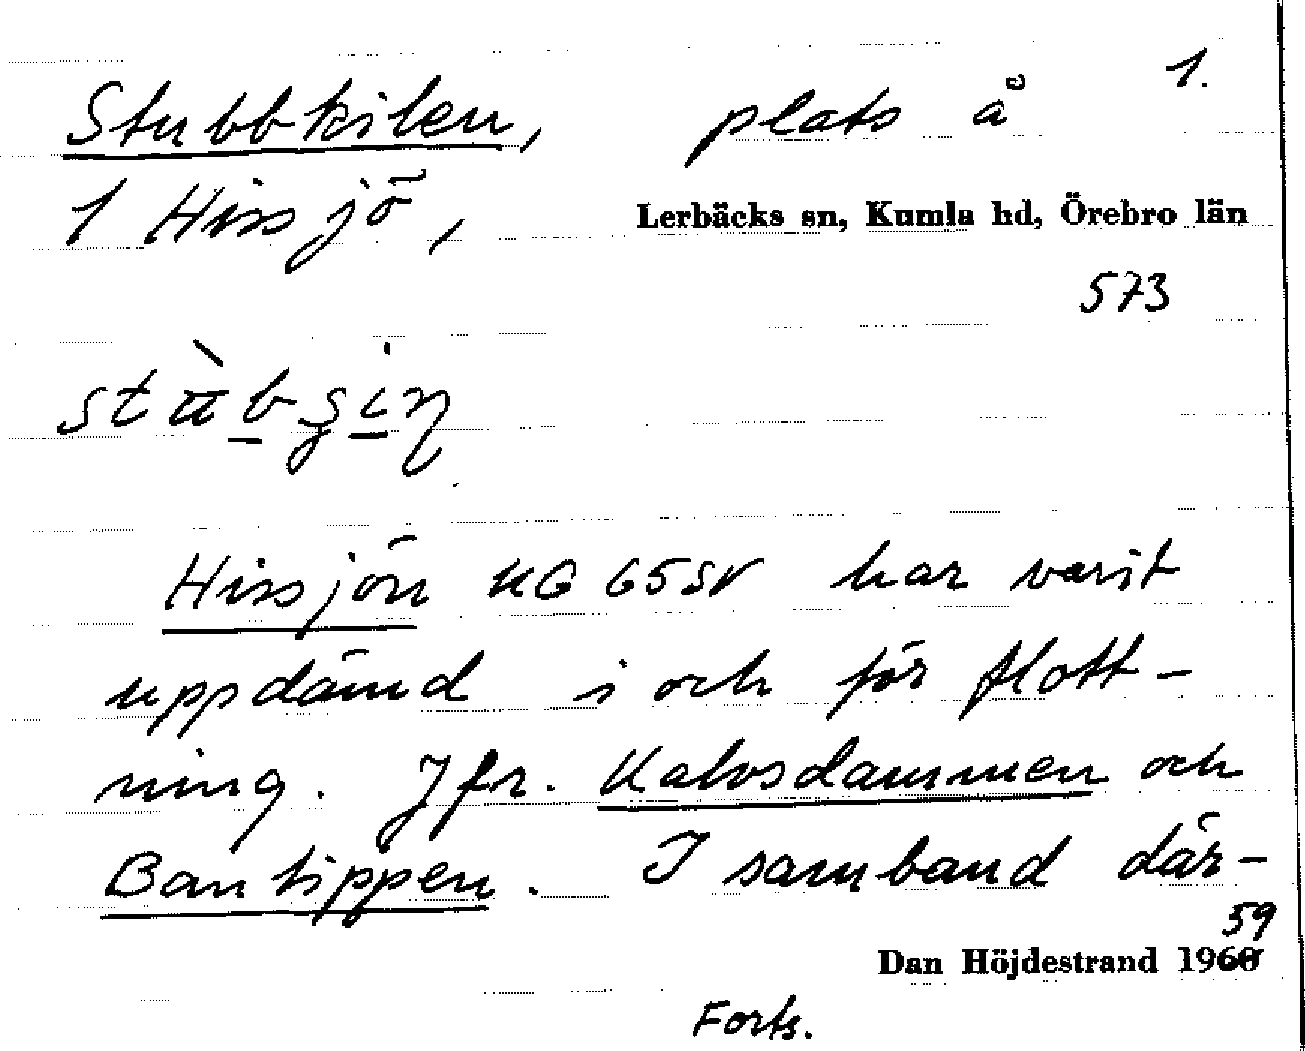 1.
Stubbkilen, plats å
1 Hissjö,
Lerbäcks sn, Kumla hd, Örebro län
573
Hissjön KG 65SV har varit
uppdämd i och för flott-
ning. Jfr. Kalvsdammen och
Bantippen. I samband där-
59
Dan Höjdestrand 1960
Forts.